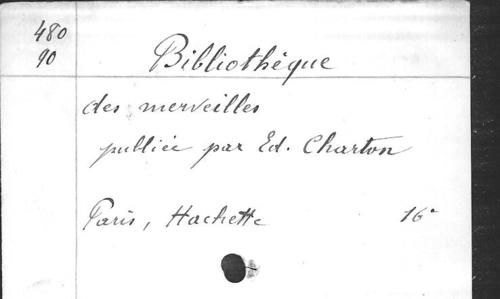 480
90
Bibliothèque
des merveilles
publiée par Ed. Charton
Paris, Hachette 16°